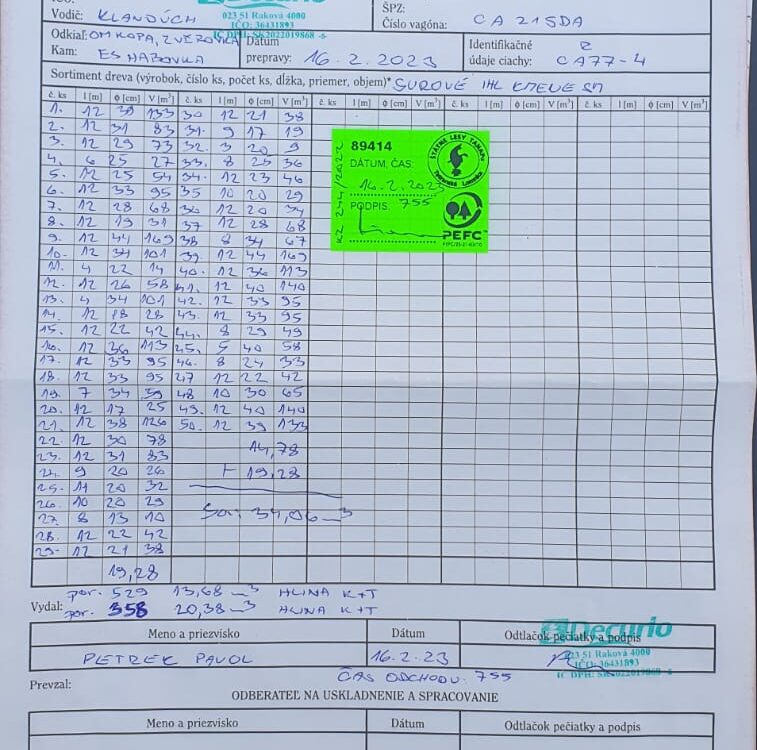 Vodič: KLANDÚCH
ŠPZ:
Číslo vagóna: CA 215DA
Decurio
023 51 Raková 4000
IČO: 36431893
IČ DPH: SK2022019868 -6-
Odkiaľ: OM KOPA, ZVEROVKA
Kam: ES HABOVKA
Dátum
prepravy: 16.2.2023
Identifikačné
údaje ciachy: CA77-4
Sortiment dreva (výrobok, číslo ks, počet ks, dĺžka, priemer, objem)* SUROVÉ IHL KMENE SM
č. ks l [m] ϕ [cm] V [m³] č. ks l [m] ϕ [cm] V [m³] č. ks l [m] ϕ [cm] V [m³] č. ks l [m] ϕ [cm] V [m³] č. ks l [m] ϕ [cm] V [m³]
1. 12 39 133 30 12 21 38
2. 12 31 83 31. 9 17 19
3. 12 29 73 32. 3 20 9
4. 6 25 27 33. 8 25 36
5. 12 25 54 34. 12 23 46
6. 12 33 95 35 10 20 29
7. 12 28 68 36 12 20 34
8. 12 19 31 37 12 28 68
9. 12 44 169 38 8 34 67
10. 12 34 101 39. 12 44 169
11. 4 22 14 40. 12 36 113
12. 12 26 58 41. 12 40 140
13. 4 34 101 42. 12 33 95
14. 12 18 28 43. 12 33 95
15. 12 22 42 44. 8 29 49
16. 12 36 113 45. 5 40 58
17. 12 33 95 46. 8 24 33
18. 12 33 95 47 12 22 42
19. 7 34 59 48 10 30 65
20. 12 17 25 49. 12 40 140
21. 12 38 126 50. 12 39 133
22. 12 30 78
14,78
23. 12 31 83
24. 9 20 26
+ 19,28
25. 11 20 32
26. 10 20 29
27. 8 13 10
34,06 m3
28. 12 22 42
29. 12 21 38
19,28
89414
DÁTUM, ČAS:
16.2.2023
PODPIS: 755
ŠTÁTNE LESY TANAPu
PEFC
por. 529 13,68 m3 HLINA K+T
Vydal: por. 358 20,38 m3 HLINA K+T
Meno a priezvisko Dátum Odtlačok pečiatky a podpis
PETREK PAVOL 16.2.23
Decurio
023 51 Raková 4000
IČO: 36431893
IČ DPH: SK2022019868 -6-
ČAS ODCHODU: 755
Prevzal:
ODBERATEĽ NA USKLADNENIE A SPRACOVANIE
Meno a priezvisko Dátum Odtlačok pečiatky a podpis